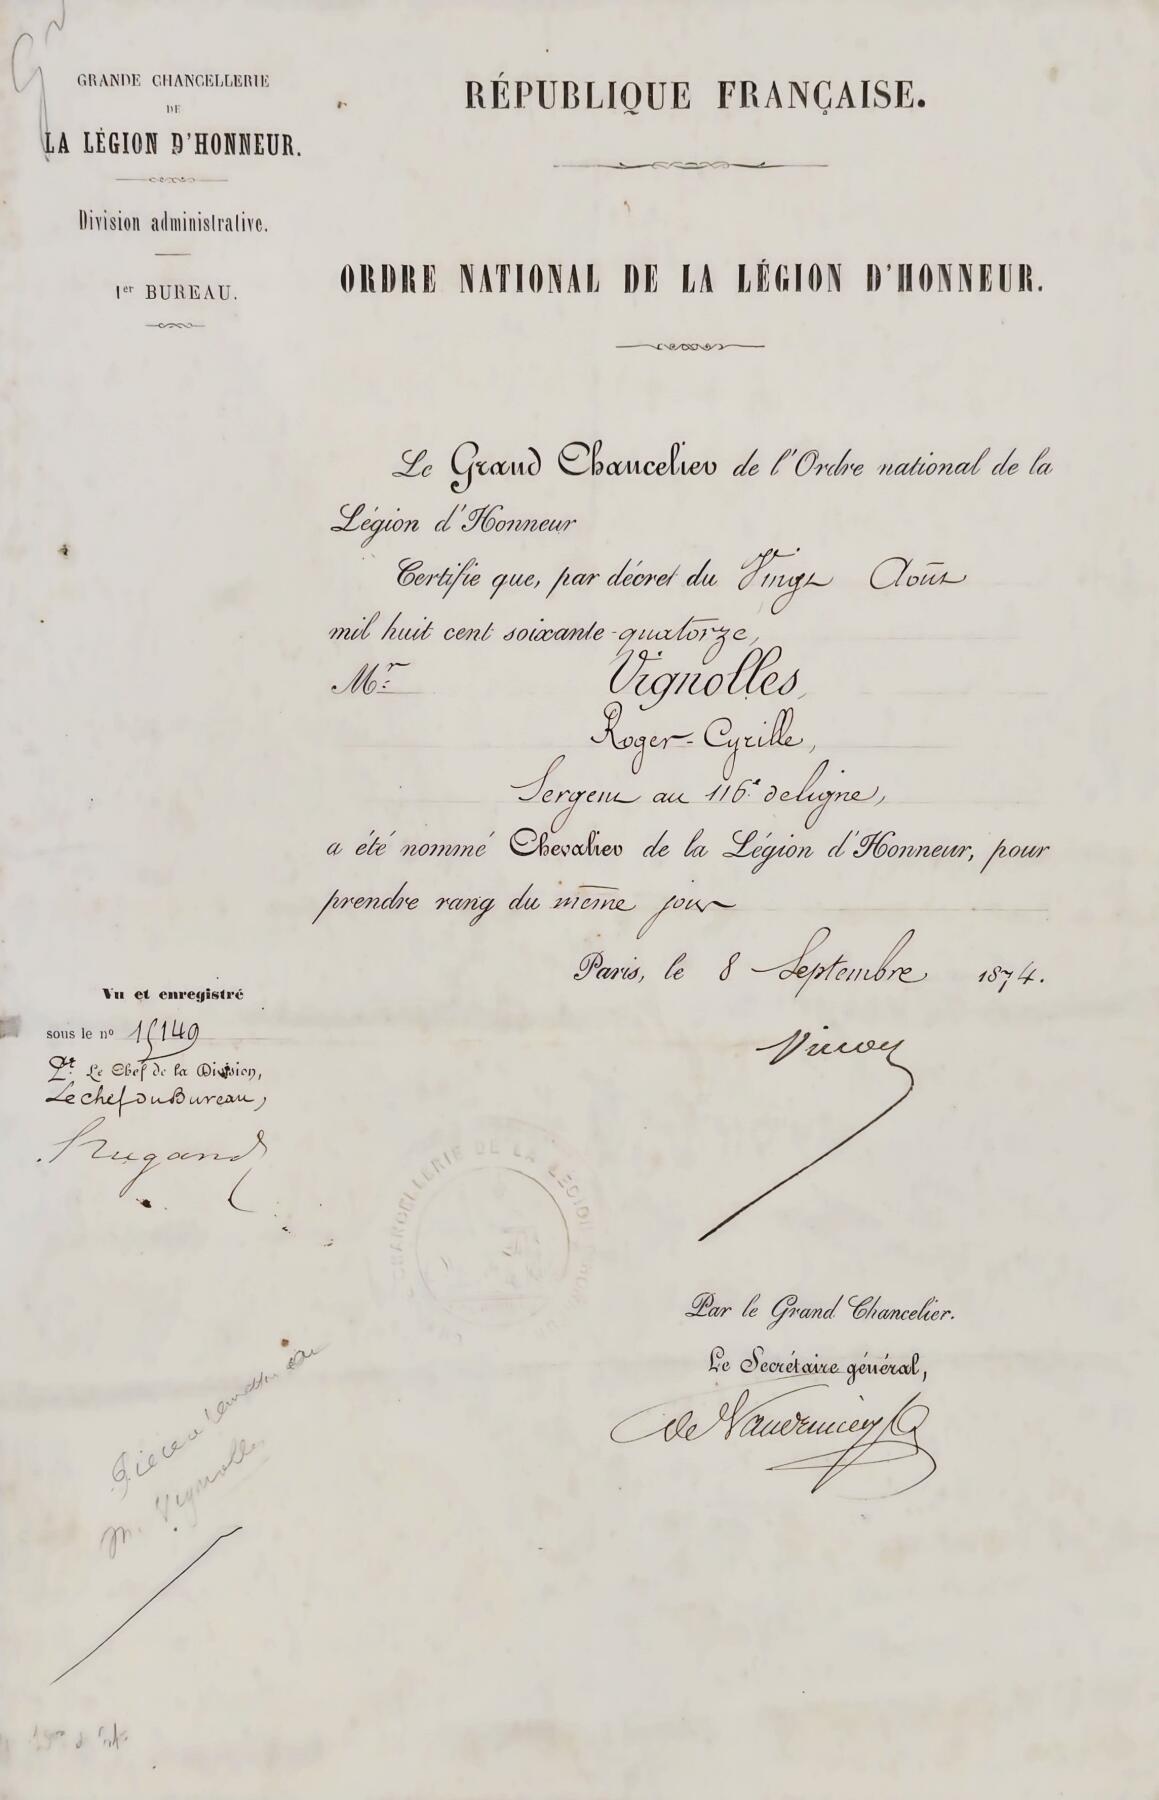 GRANDE CHANCELLERIE
DE
LA LÉGION D'HONNEUR.
Division administrative.
1er BUREAU.
RÉPUBLIQUE FRANÇAISE.
ORDRE NATIONAL DE LA LÉGION D'HONNEUR.
Le Grand Chancelier de l'Ordre national de la
Légion d'Honneur
Certifie que, par décret du Vingt Août
mil huit cent soixante-quatorze,
Mr Vignolles,
Roger-Cyrille,
Sergent au 116e de ligne,
a été nommé Chevalier de la Légion d'Honneur, pour
prendre rang du même jour
Paris, le 8 Septembre 1874.
Vu et enregistré
sous le no 15149
Pr Le Chef de la Division,
Le chef du Bureau,
Vinoy
GRANDE CHANCELLERIE DE LA LÉGION D'HONNEUR
Par le Grand Chancelier.
Le Secrétaire général,
de Vaudrimey
Pièce à
M. Vignolles